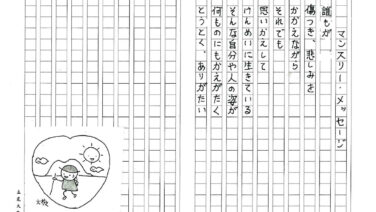 マンスリー・メッセージ
誰もが
傷つき、悲しみを
かかえながら
それでも
思いかえして
けんめいに生きている
そんな自分や人の姿が
何ものにもかえがたく
とうとく、ありがたい